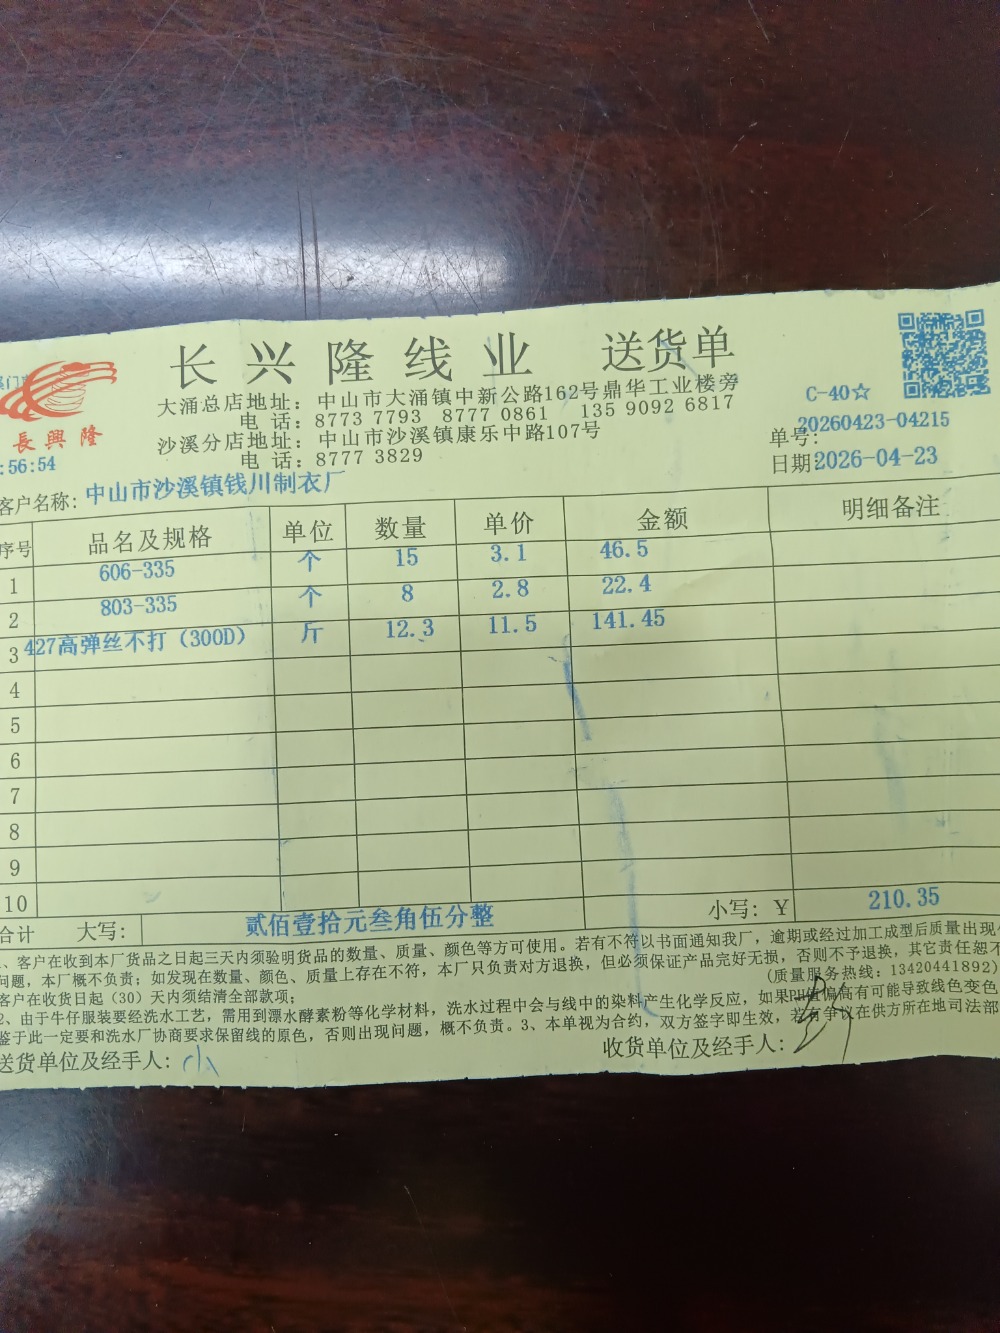 长兴隆线业 送货单
長興隆
大涌总店地址：中山市大涌镇中新公路162号鼎华工业楼旁
电 话：8773 7793 8777 0861 135 9092 6817
沙溪分店地址：中山市沙溪镇康乐中路107号
电 话：8777 3829
C-40☆
单号：20260423-04215
日期：2026-04-23
:56:54
客户名称：中山市沙溪镇钱川制衣厂
序号 品名及规格 单位 数量 单价 金额 明细备注
1 606-335 个 15 3.1 46.5
2 803-335 个 8 2.8 22.4
3 427高弹丝不打（300D） 斤 12.3 11.5 141.45
4
5
6
7
8
9
10
合计 大写：贰佰壹拾元叁角伍分整 小写：￥ 210.35
、客户在收到本厂货品之日起三天内须验明货品的数量、质量、颜色等方可使用。若有不符以书面通知我厂，逾期或经过加工成型后质量出现
问题，本厂概不负责；如发现在数量、颜色、质量上存在不符，本厂只负责对方退换，但必须保证产品完好无损，否则不予退换，其它责任恕不
客户在收货日起（30）天内须结清全部款项；
(质量服务热线：13420441892)
2、由于牛仔服装要经洗水工艺，需用到漂水酵素粉等化学材料，洗水过程中会与线中的染料产生化学反应，如果PH值偏高有可能导致线色变色
鉴于此一定要和洗水厂协商要求保留线的原色，否则出现问题，概不负责。3、本单视为合约，双方签字即生效，若有争议在供方所在地司法部
送货单位及经手人：
收货单位及经手人：